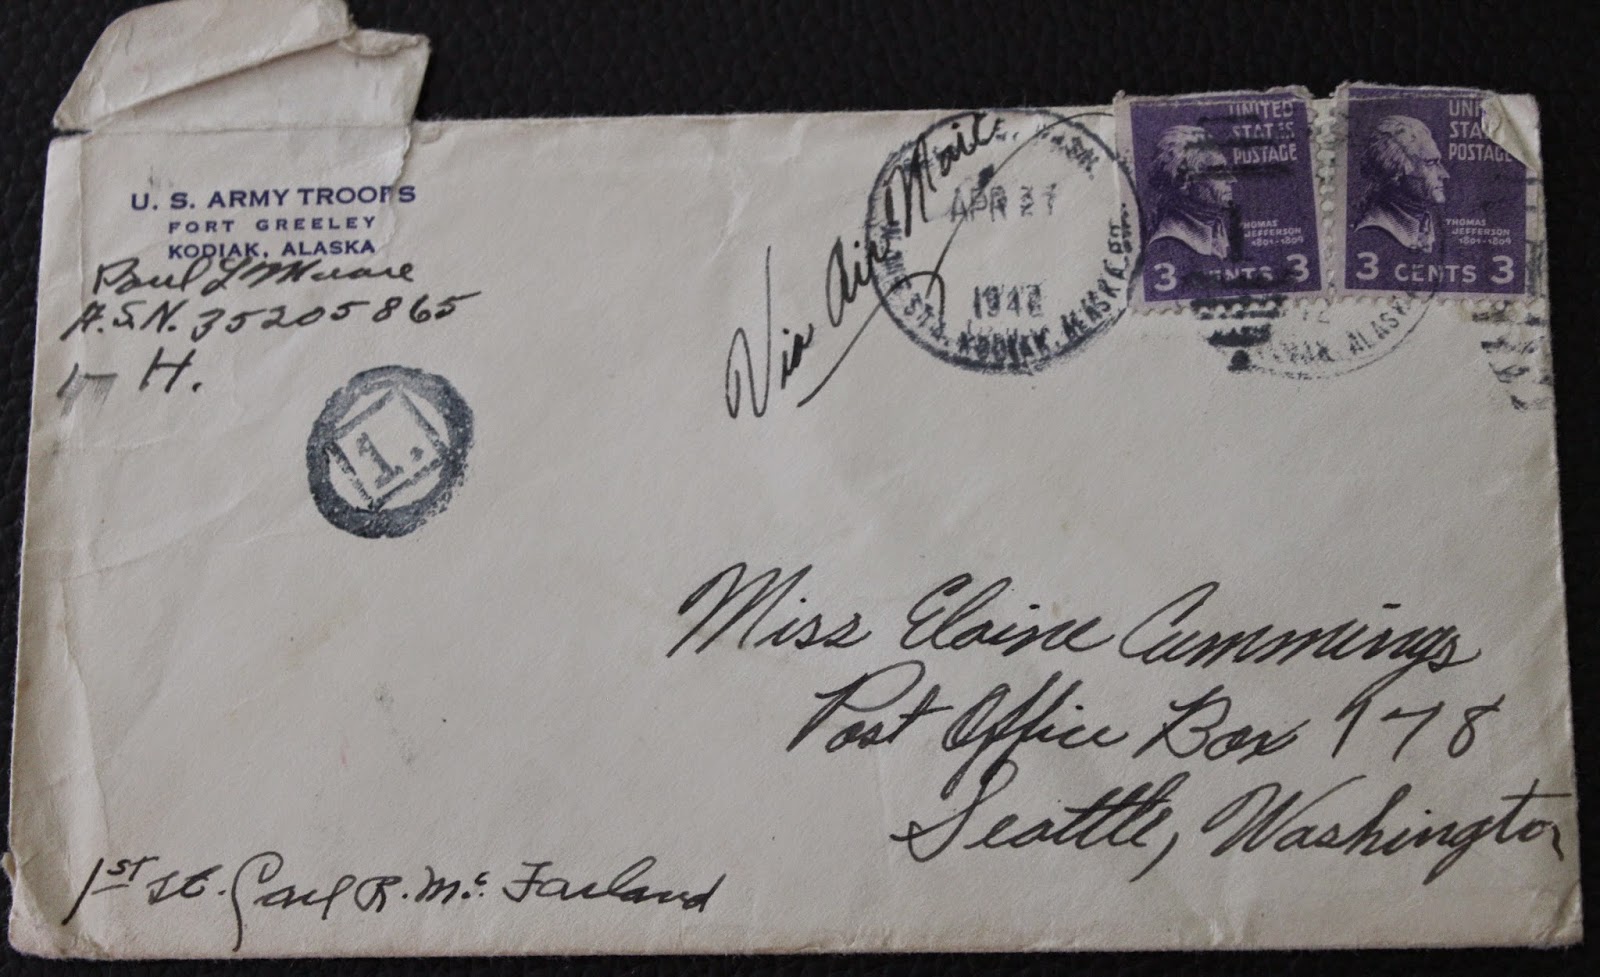 U. S. ARMY TROOPS
FORT GREELEY
KODIAK, ALASKA
Paul L Moore
A.S.N. 35205865
H.
1.
Via Air Mail
APR 27
1942
KODIAK, ALASKA
UNITED
STATES
POSTAGE
THOMAS
JEFFERSON
1801-1809
3 CENTS 3
UNI
STA
POSTAGE
THOMAS
JEFFERSON
1801-1809
3 CENTS 3
ALASKA
Miss Elaine Cummings
Post Office Box 978
Seattle, Washington
1st Lt. Carl R. Mc Farland